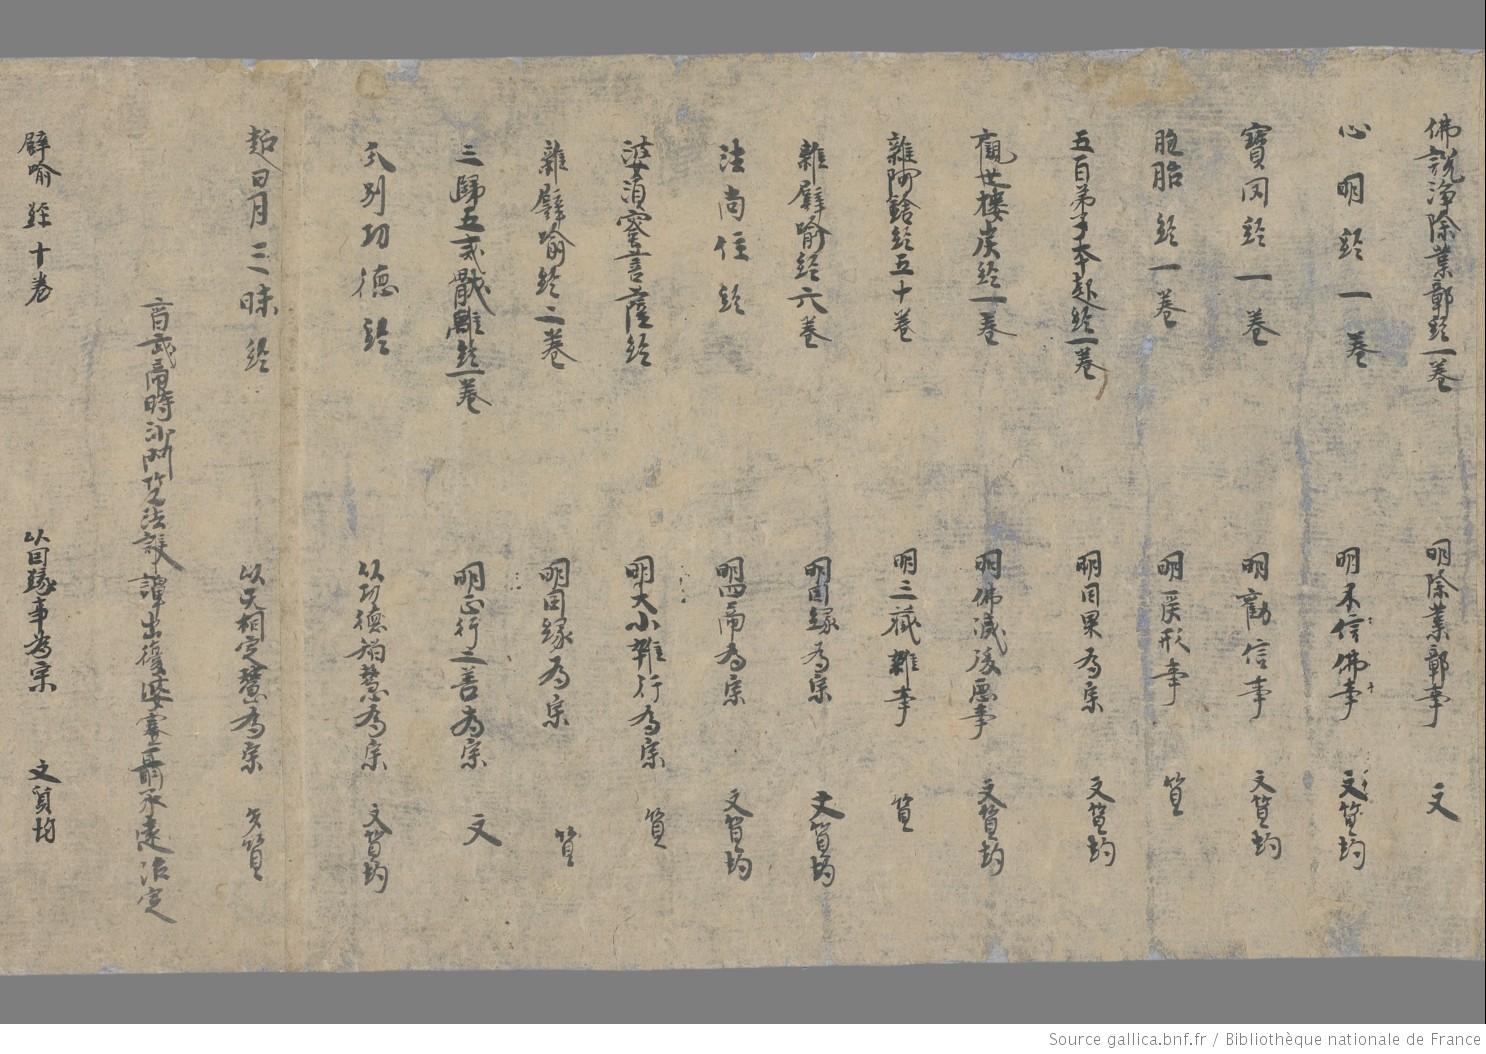 佛說淨除業鄣經一卷 明除業鄣事 文
心明經一卷 明不信佛事 文質均
寶罔經一卷 明勸信事 文質均
胞胎經一卷 明形事 質
五百弟子本起經一卷 明因果為宗 文質均
觀世樓炭經一卷 明佛滅後惡事 文質均
雜阿鋡經五十卷 明三藏雜事 質
雜譬喻經六卷 明因緣為宗 文質均
法尚住經 明四諦為宗 文質均
婆須蜜菩薩經 明大小雜行為宗 質
雜譬喻經二卷 明因緣為宗 質
三歸五戒經一卷 明正行之善為宗 文
別功德經 以功德智慧為宗 文質均
超日月三昧經 以定慧為宗 質
武帝時沙門竺法護譯出復婆塞聶承遠治定
譬喻經十卷 以因緣事為宗 文質均
Source gallica.bnf.fr / Bibliothèque nationale de France